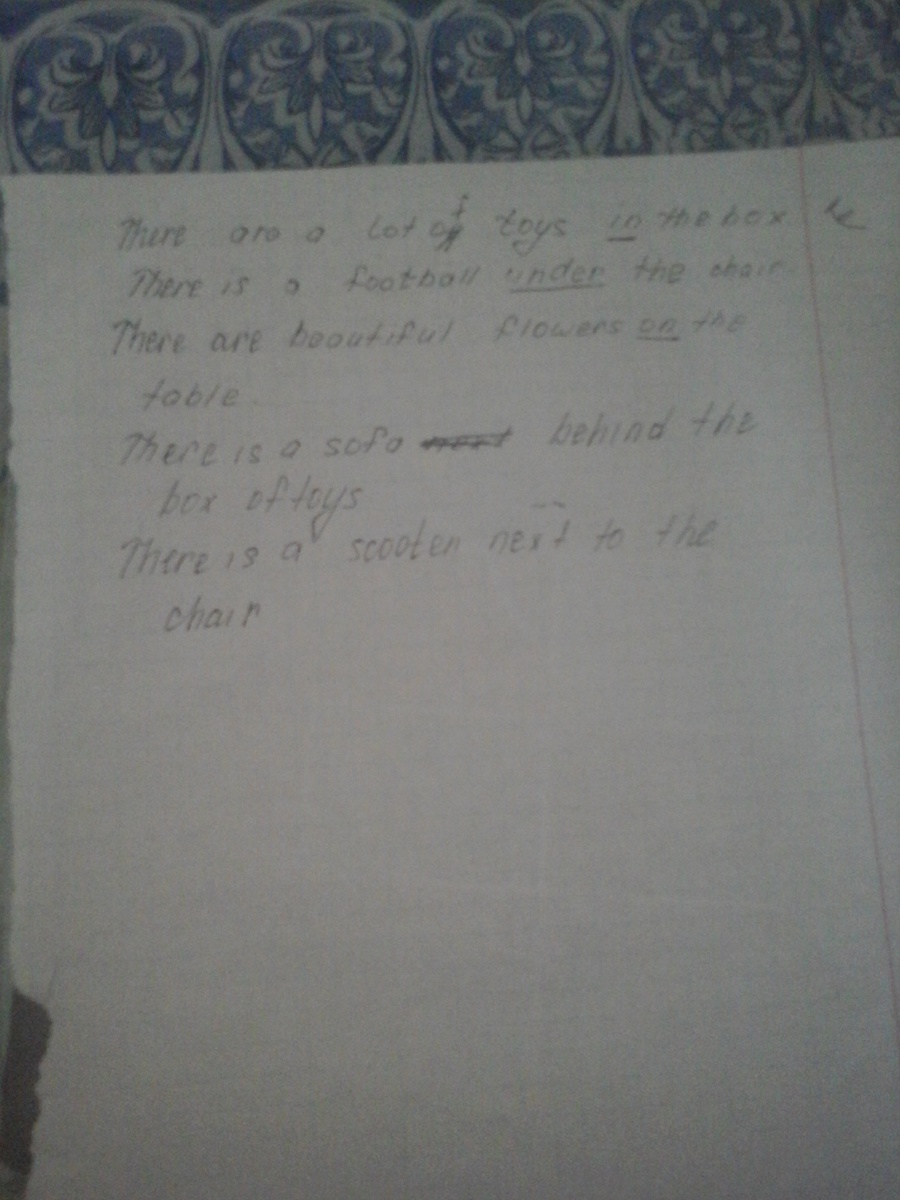 There are a lot of toys in the box
There is a football under the chair
There are beautiful flowers on the
table.
There is a sofa next behind the
box of toys
There is a scooter next to the
chair